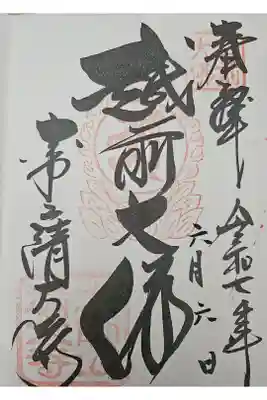 奉拝 令和七年
六月六日
越前大佛
大師山清大寺